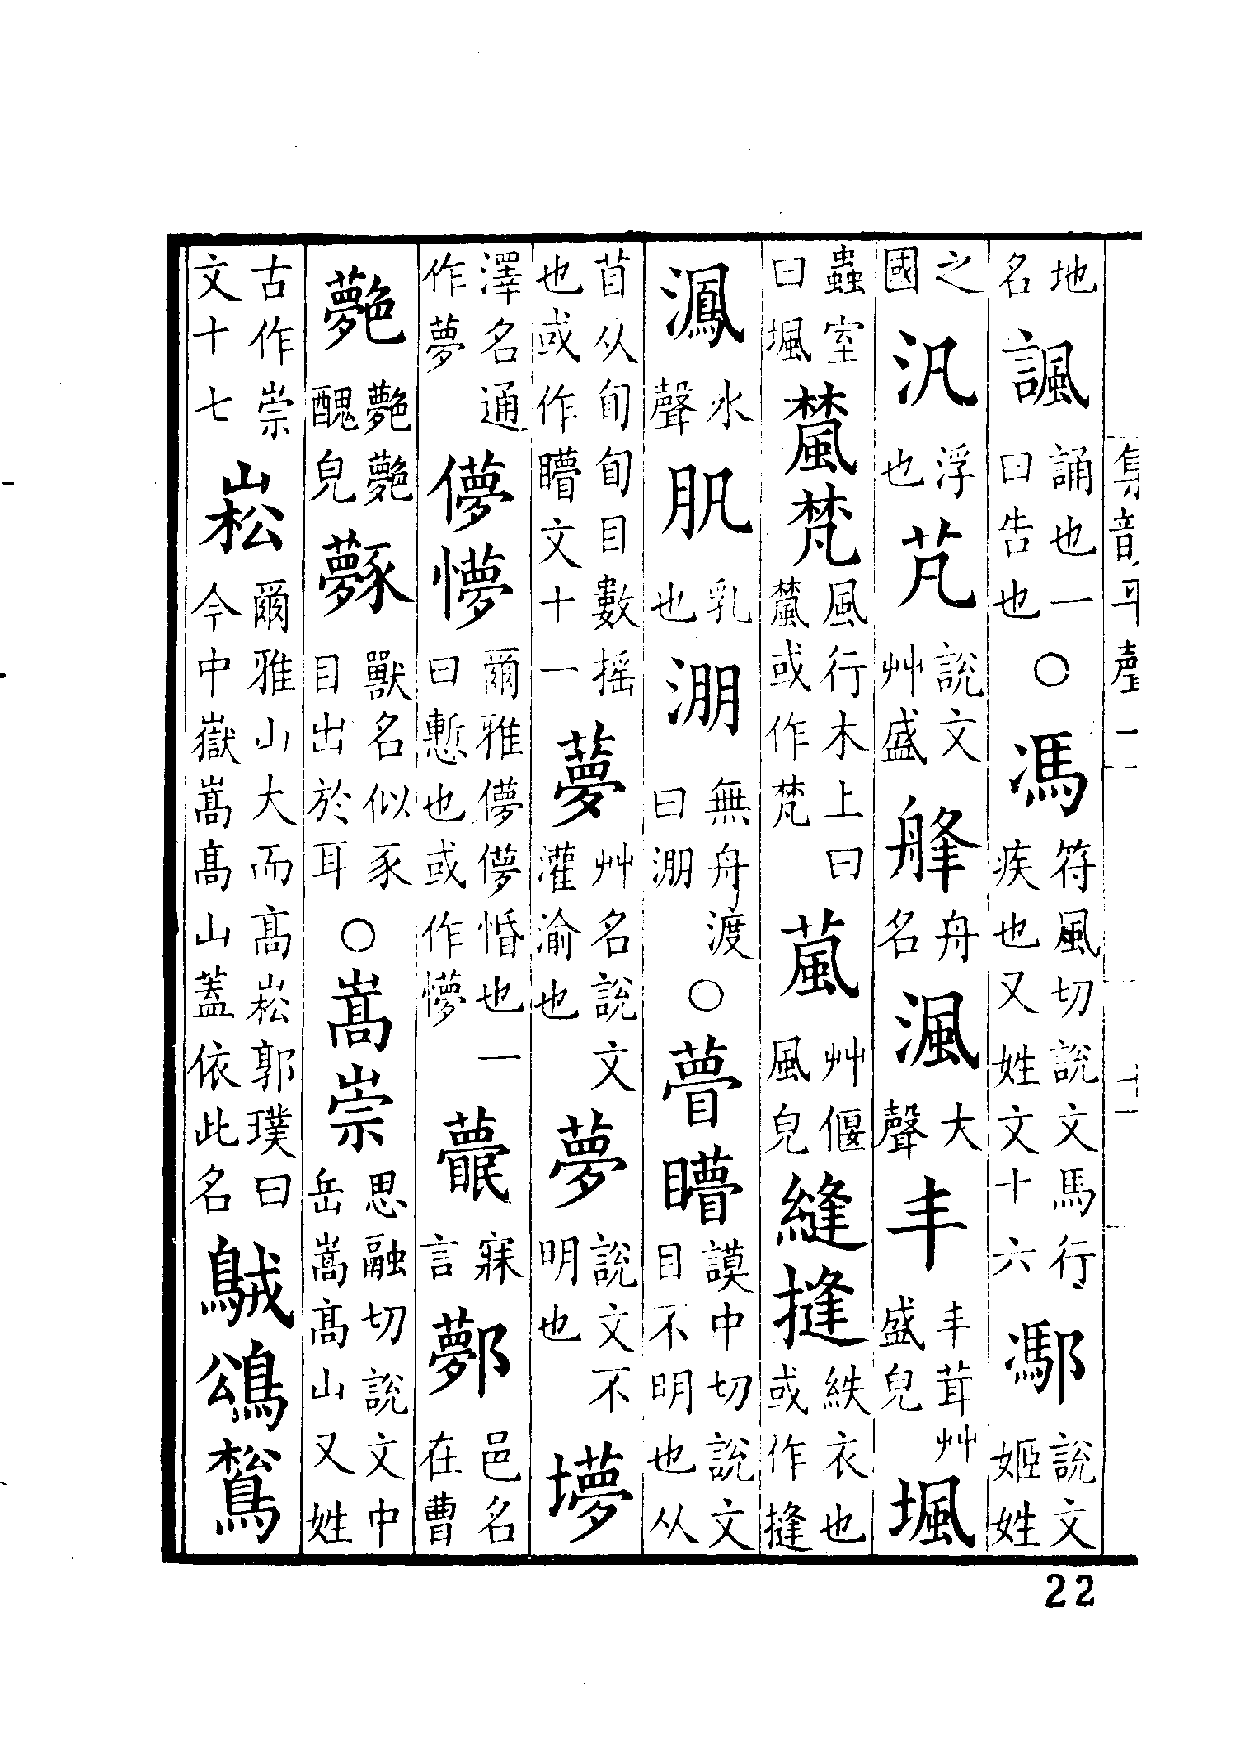 集韻平聲一 十一
地名諷誦也一曰告也○馮符風切說文馬行疾也又姓文十六䣝說文姬姓
之國汎浮也芃說文艸盛舽舟名渢大聲丰丰茸艸盛皃堸
蟲室曰堸檒梵風行木上曰檒或作梵葻艸偃風皃縫摓紩衣也或作摓
水聲乳也淜無舟渡曰淜○瞢矒謨中切說文目不明也从
苜从旬旬目數搖也或作矒文十一夢艸名說文灌渝也夢說文不明也㙹
澤名通作夢儚懜爾雅儚儚惛也一曰慙也或作懜寐言鄸邑名在曹
醜皃獸名似豕目出於耳○嵩崇思融切說文中岳嵩高山又姓
古作崇文十七崧爾雅山大而高崧郭璞曰今中嶽嵩高山蓋依此名
22